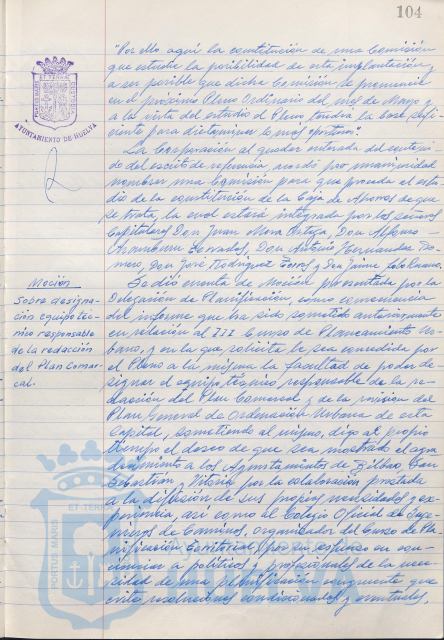 104
"Por ello aquí la constitución de una Comisión
que estudie la posibilidad de esta implantación y
a ser posible que dicha Comisión se pronuncie
en el próximo Pleno Ordinario del mes de Mayo y
a la vista del estudio el Pleno tendrá la base sufi-
ciente para dictaminar lo más oportuno".
La Corporación al quedar enterada del conteni-
do del escrito de referencia, acordó por unanimidad
nombrar una Comisión para que proceda al estu-
dio de la constitución de la Caja de Ahorros de que
se trata, la cual estará integrada por los señores
Capitulares Don Juan Mora Ortega, Don Alfonso
Aramburu Terrades, Don Antonio Hernandez
Don José Rodriguez y Don Jaime
AYUNTAMIENTO DE HUELVA
Moción
Sobre designa-
ción equipo téc-
nico responsable
de la redacción
del Plan Comar-
cal.
Se dió cuenta de Moción presentada por la
Delegación de Planificación, como consecuencia
del informe que ha sido sometido anteriormente
en relación al III Curso de Planeamiento Ur-
bano, y en la que solicita le sea concedida por
el Pleno a la misma la facultad de poder de-
signar el equipo técnico responsable de la re-
dacción del Plan Comarcal y de la revisión del
Plan General de Ordenación Urbana de esta
Capital, sometiendo al mismo, digo al propio
tiempo el deseo de que sea mostrado el agra-
decimiento a los Ayuntamientos de Bilbao, San
Sebastián y Vitoria por la colaboración prestada
a la difusión de sus propias necesidades y ex-
periencia, así como al Colegio Oficial de Inge-
nieros de Caminos, organizador del Curso de Pla-
nificación Territorial, por su esfuerzo en con-
cienciar a políticos y profesionales de la nece-
sidad de una planificación congruente que
evite resoluciones condicionadas y
ET TERRAE
PORTUS MARIS